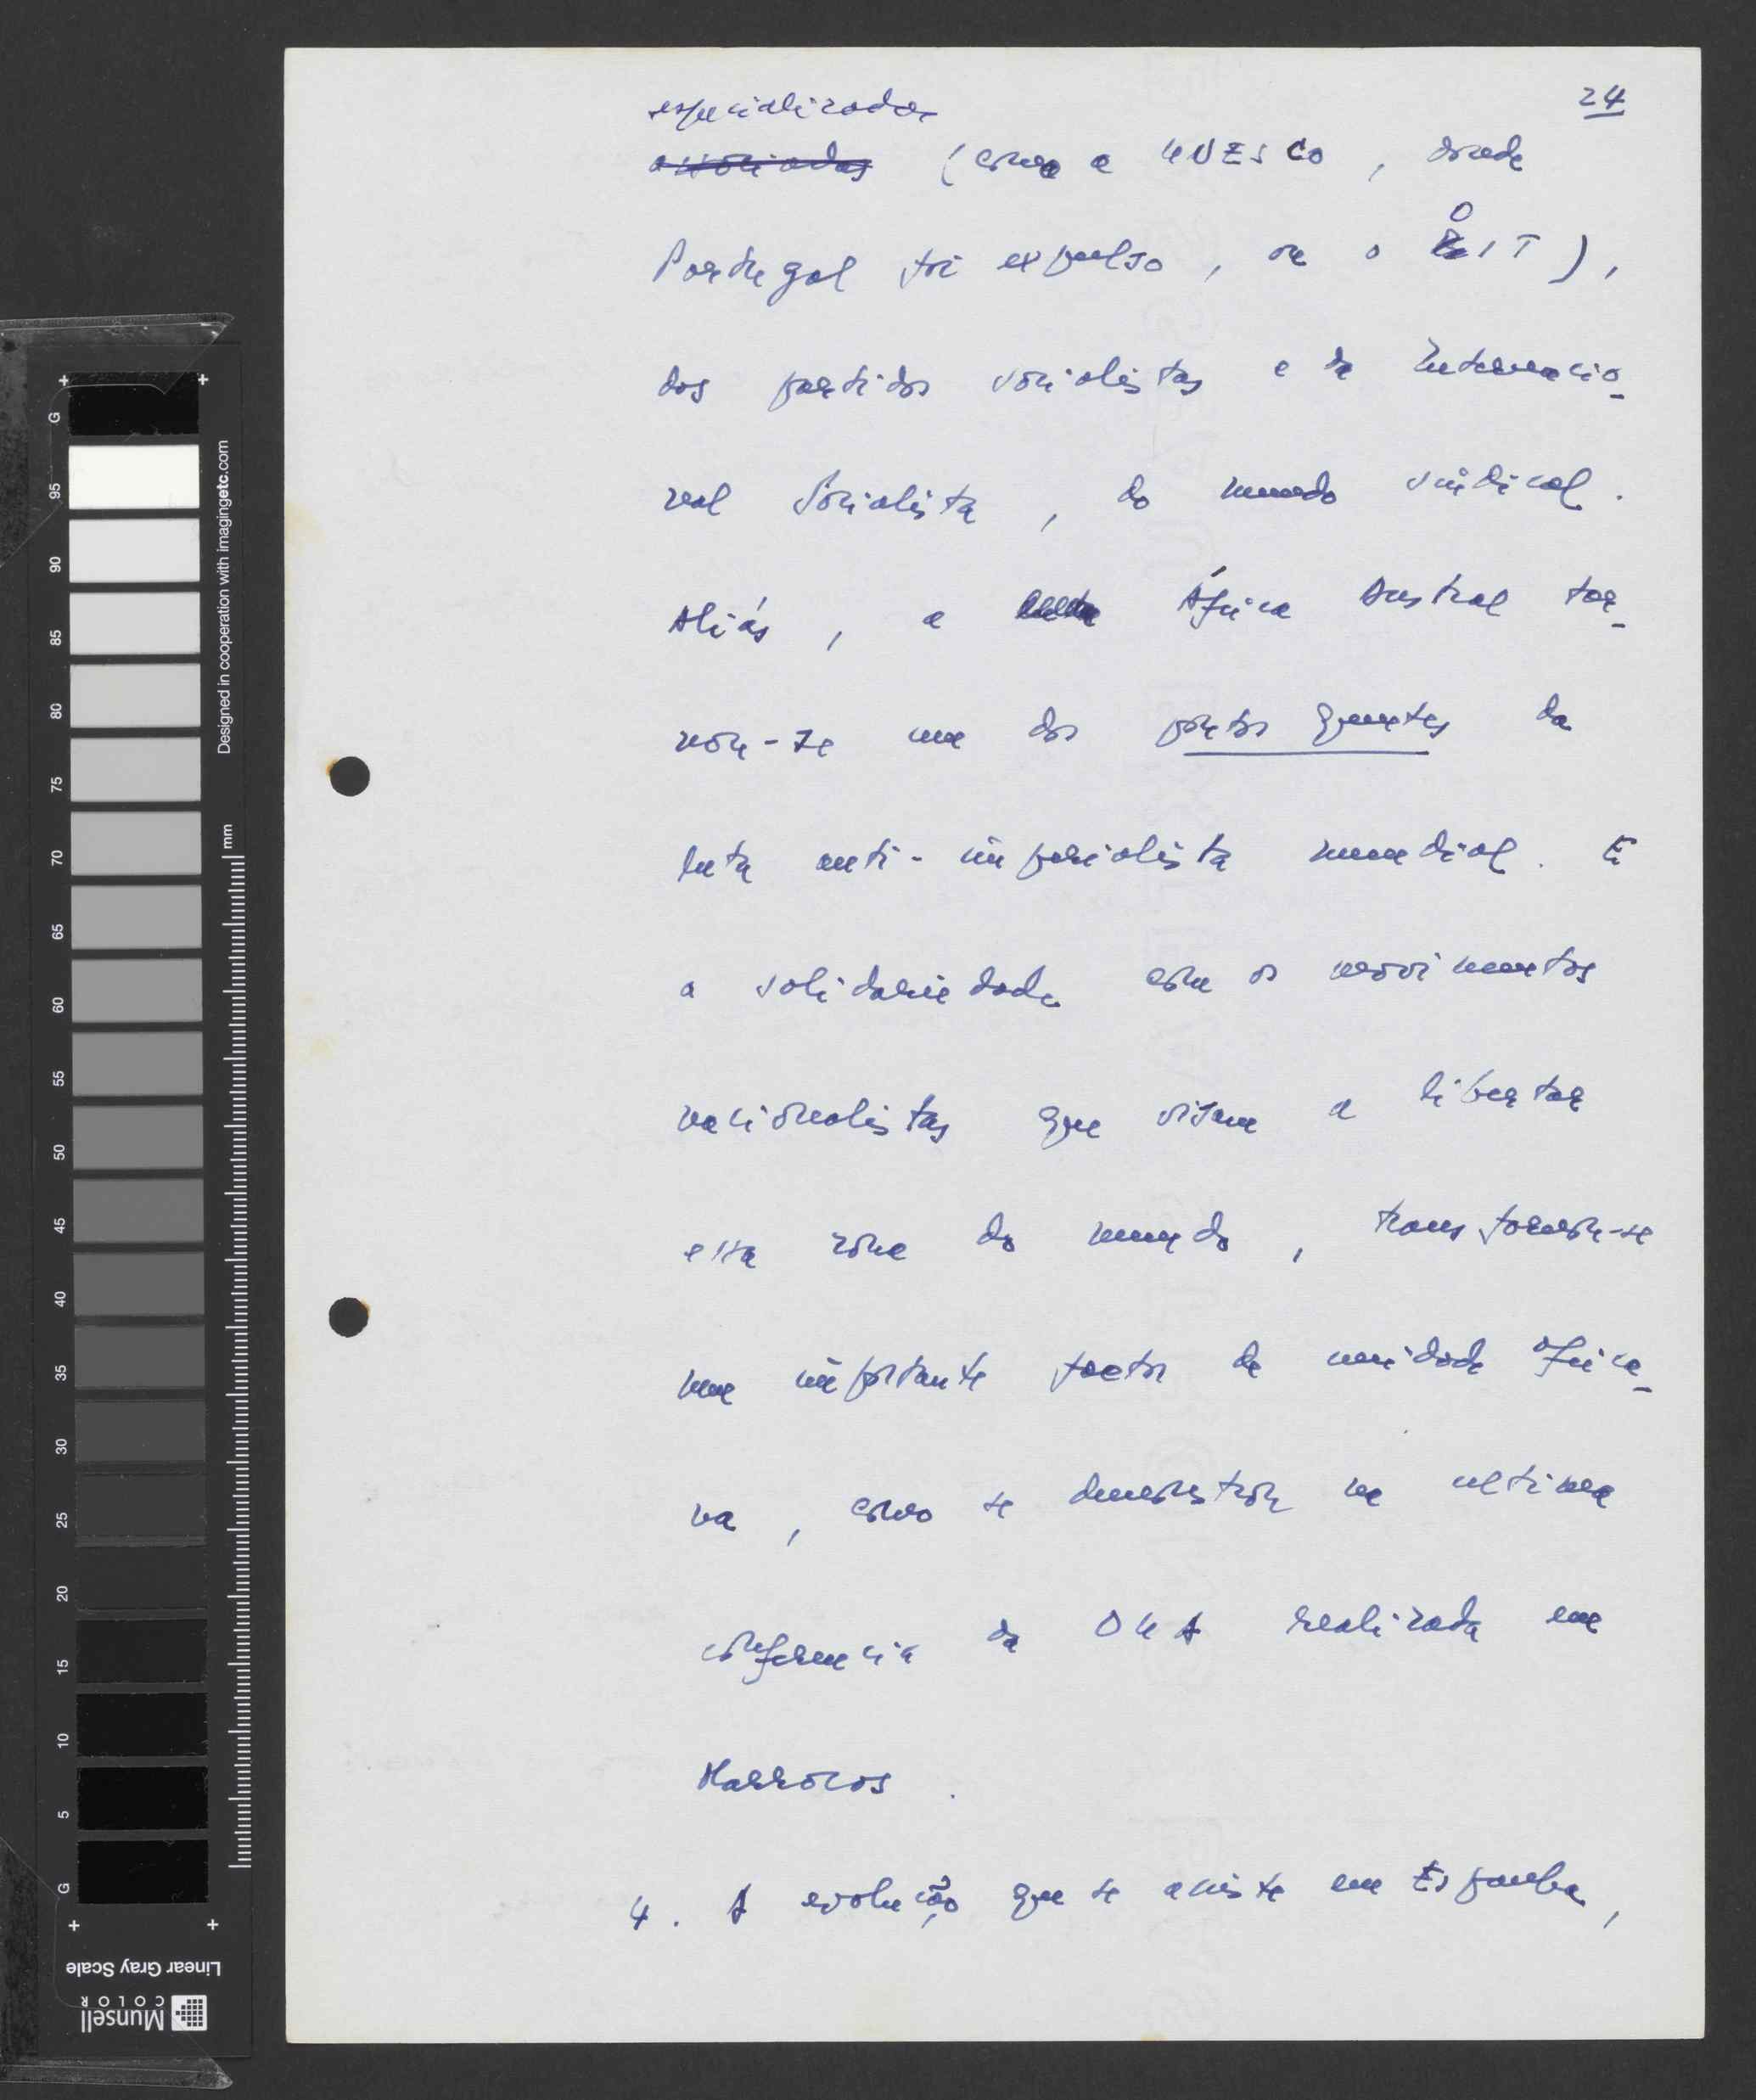 24
especializadas
associadas (como a UNESCO, donde
Portugal foi expulso, ou o OIT),
dos partidos socialistas e da Internacio-
nal Socialista, do mundo sindical.
Aliás, a luta África Austral tor-
nou-se um dos pontos quentes da
luta anti-imperialista mundial. E
a solidariedade com os movimentos
nacionalistas que visam a libertar
essa zona do mundo, transformou-se
num importante factor de unidade africa-
na, como se demonstrou na ultima
conferencia da OUA realizada em
Marrocos.
4. A evolução que se assiste em Espanha,
G
95
90
85
80
75
70
65
60
55
50
45
40
35
30
25
20
15
10
5
G
mm
Designed in cooperation with imagingetc.com
Linear Gray Scale
Munsell
COLOR